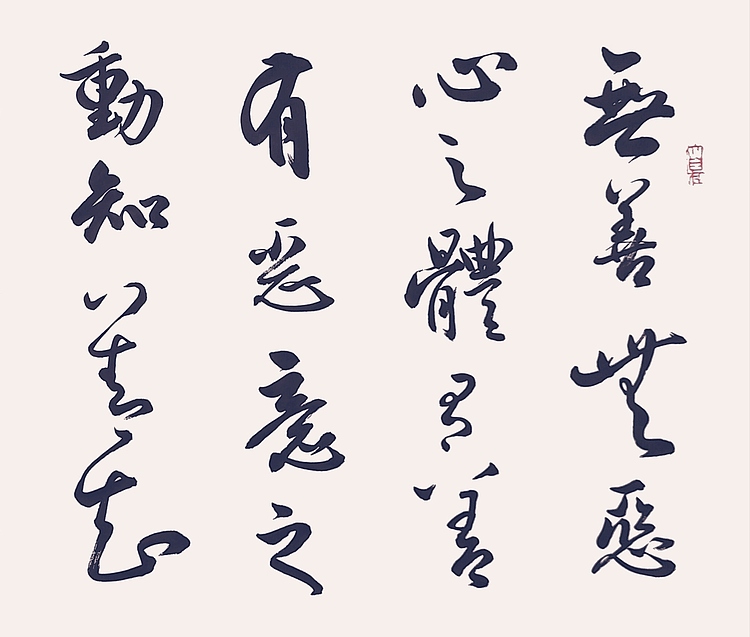 無善無惡
心之體有善
有惡意之
動知善知